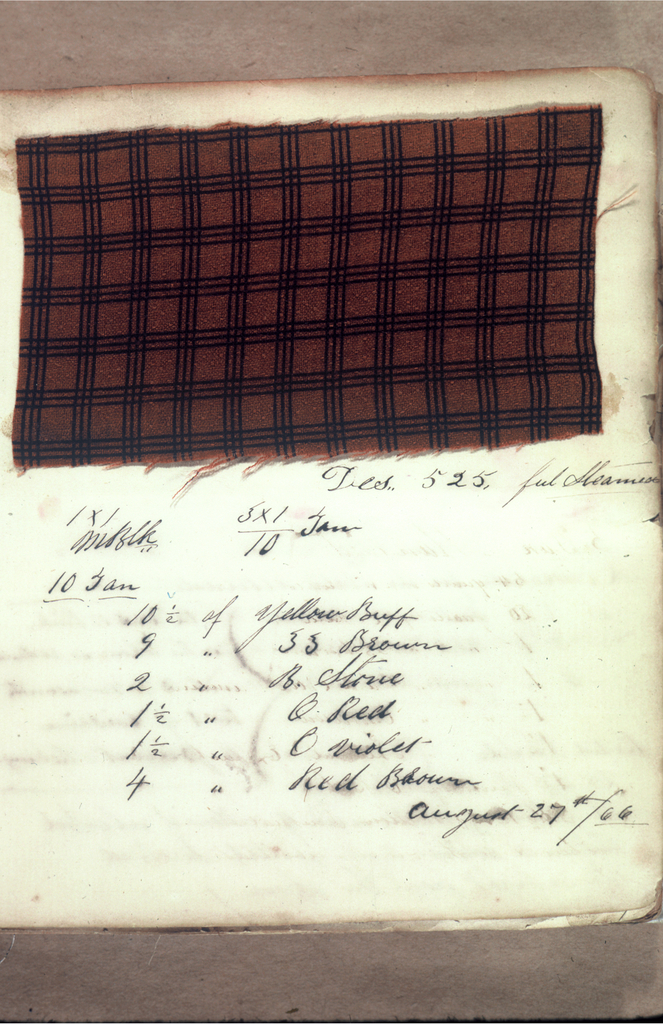 Des. 525. ful Steamed
1 x 1 5 x 1
MBlk 10 Tan
10 Tan
10 ½ of Yellow Buff
9 " 33 Brown
2 " B. Stone
1 ½ " C Red
1 ½ " C violet
4 " Red Brown
August 27th/66